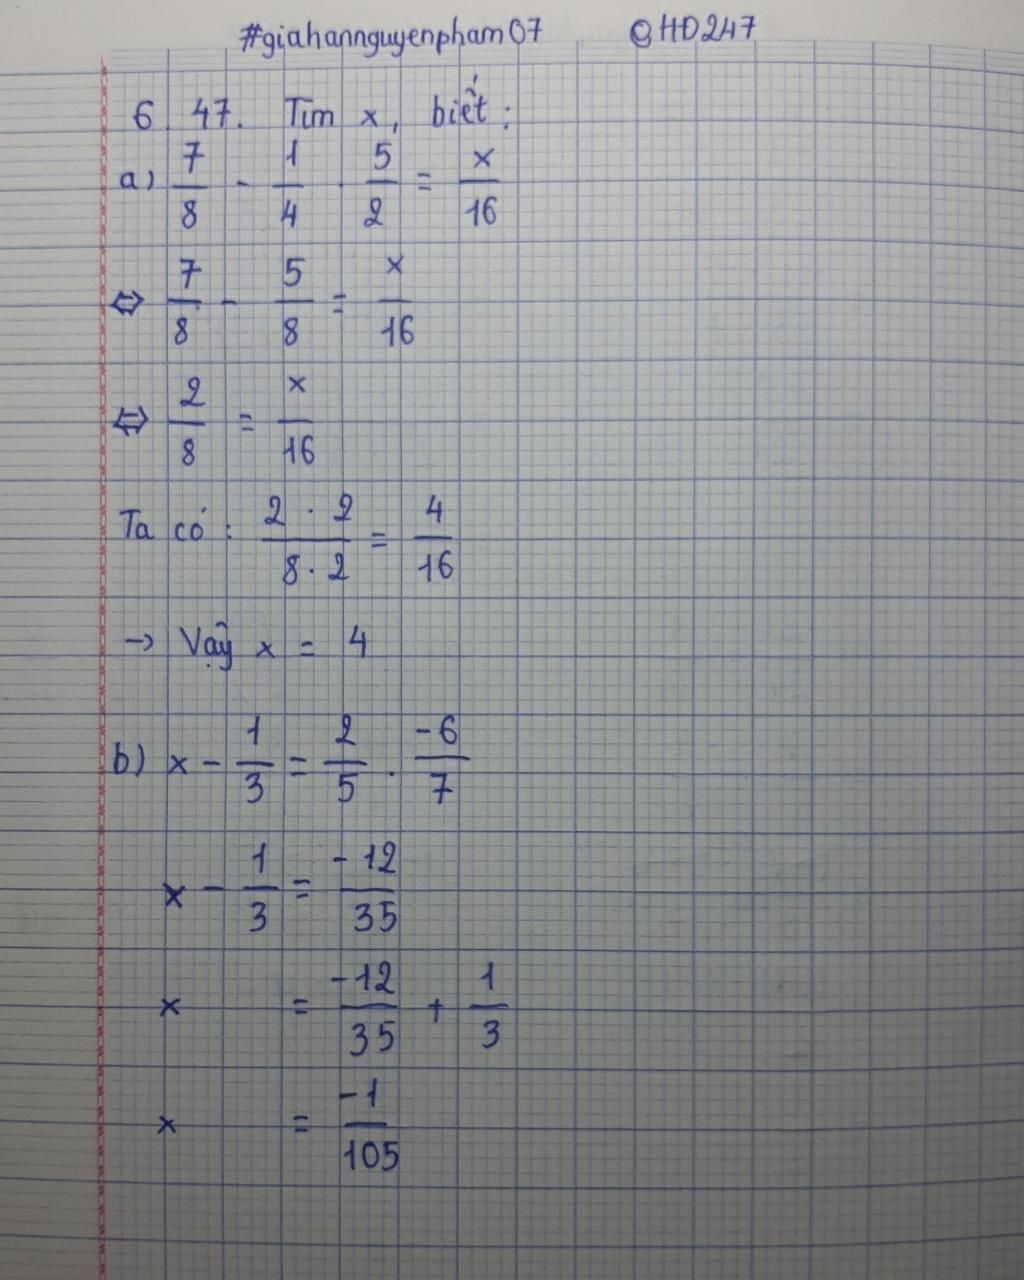 #giahannguyenpham07 @HD247
6.47. Tìm x, biết:
a) 7/8 - 1/4 . 5/2 = x/16
⇔ 7/8 - 5/8 = x/16
⇔ 2/8 = x/16
Ta có: 2 . 2/8 . 2 = 4/16
→ Vậy x = 4
b) x - 1/3 = 2/5 . -6/7
x - 1/3 = -12/35
x = -12/35 + 1/3
x = -1/105